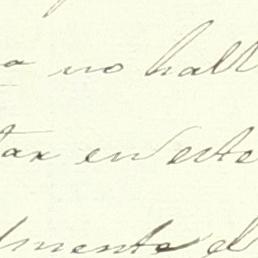 a no hall
tar en este
lmente el